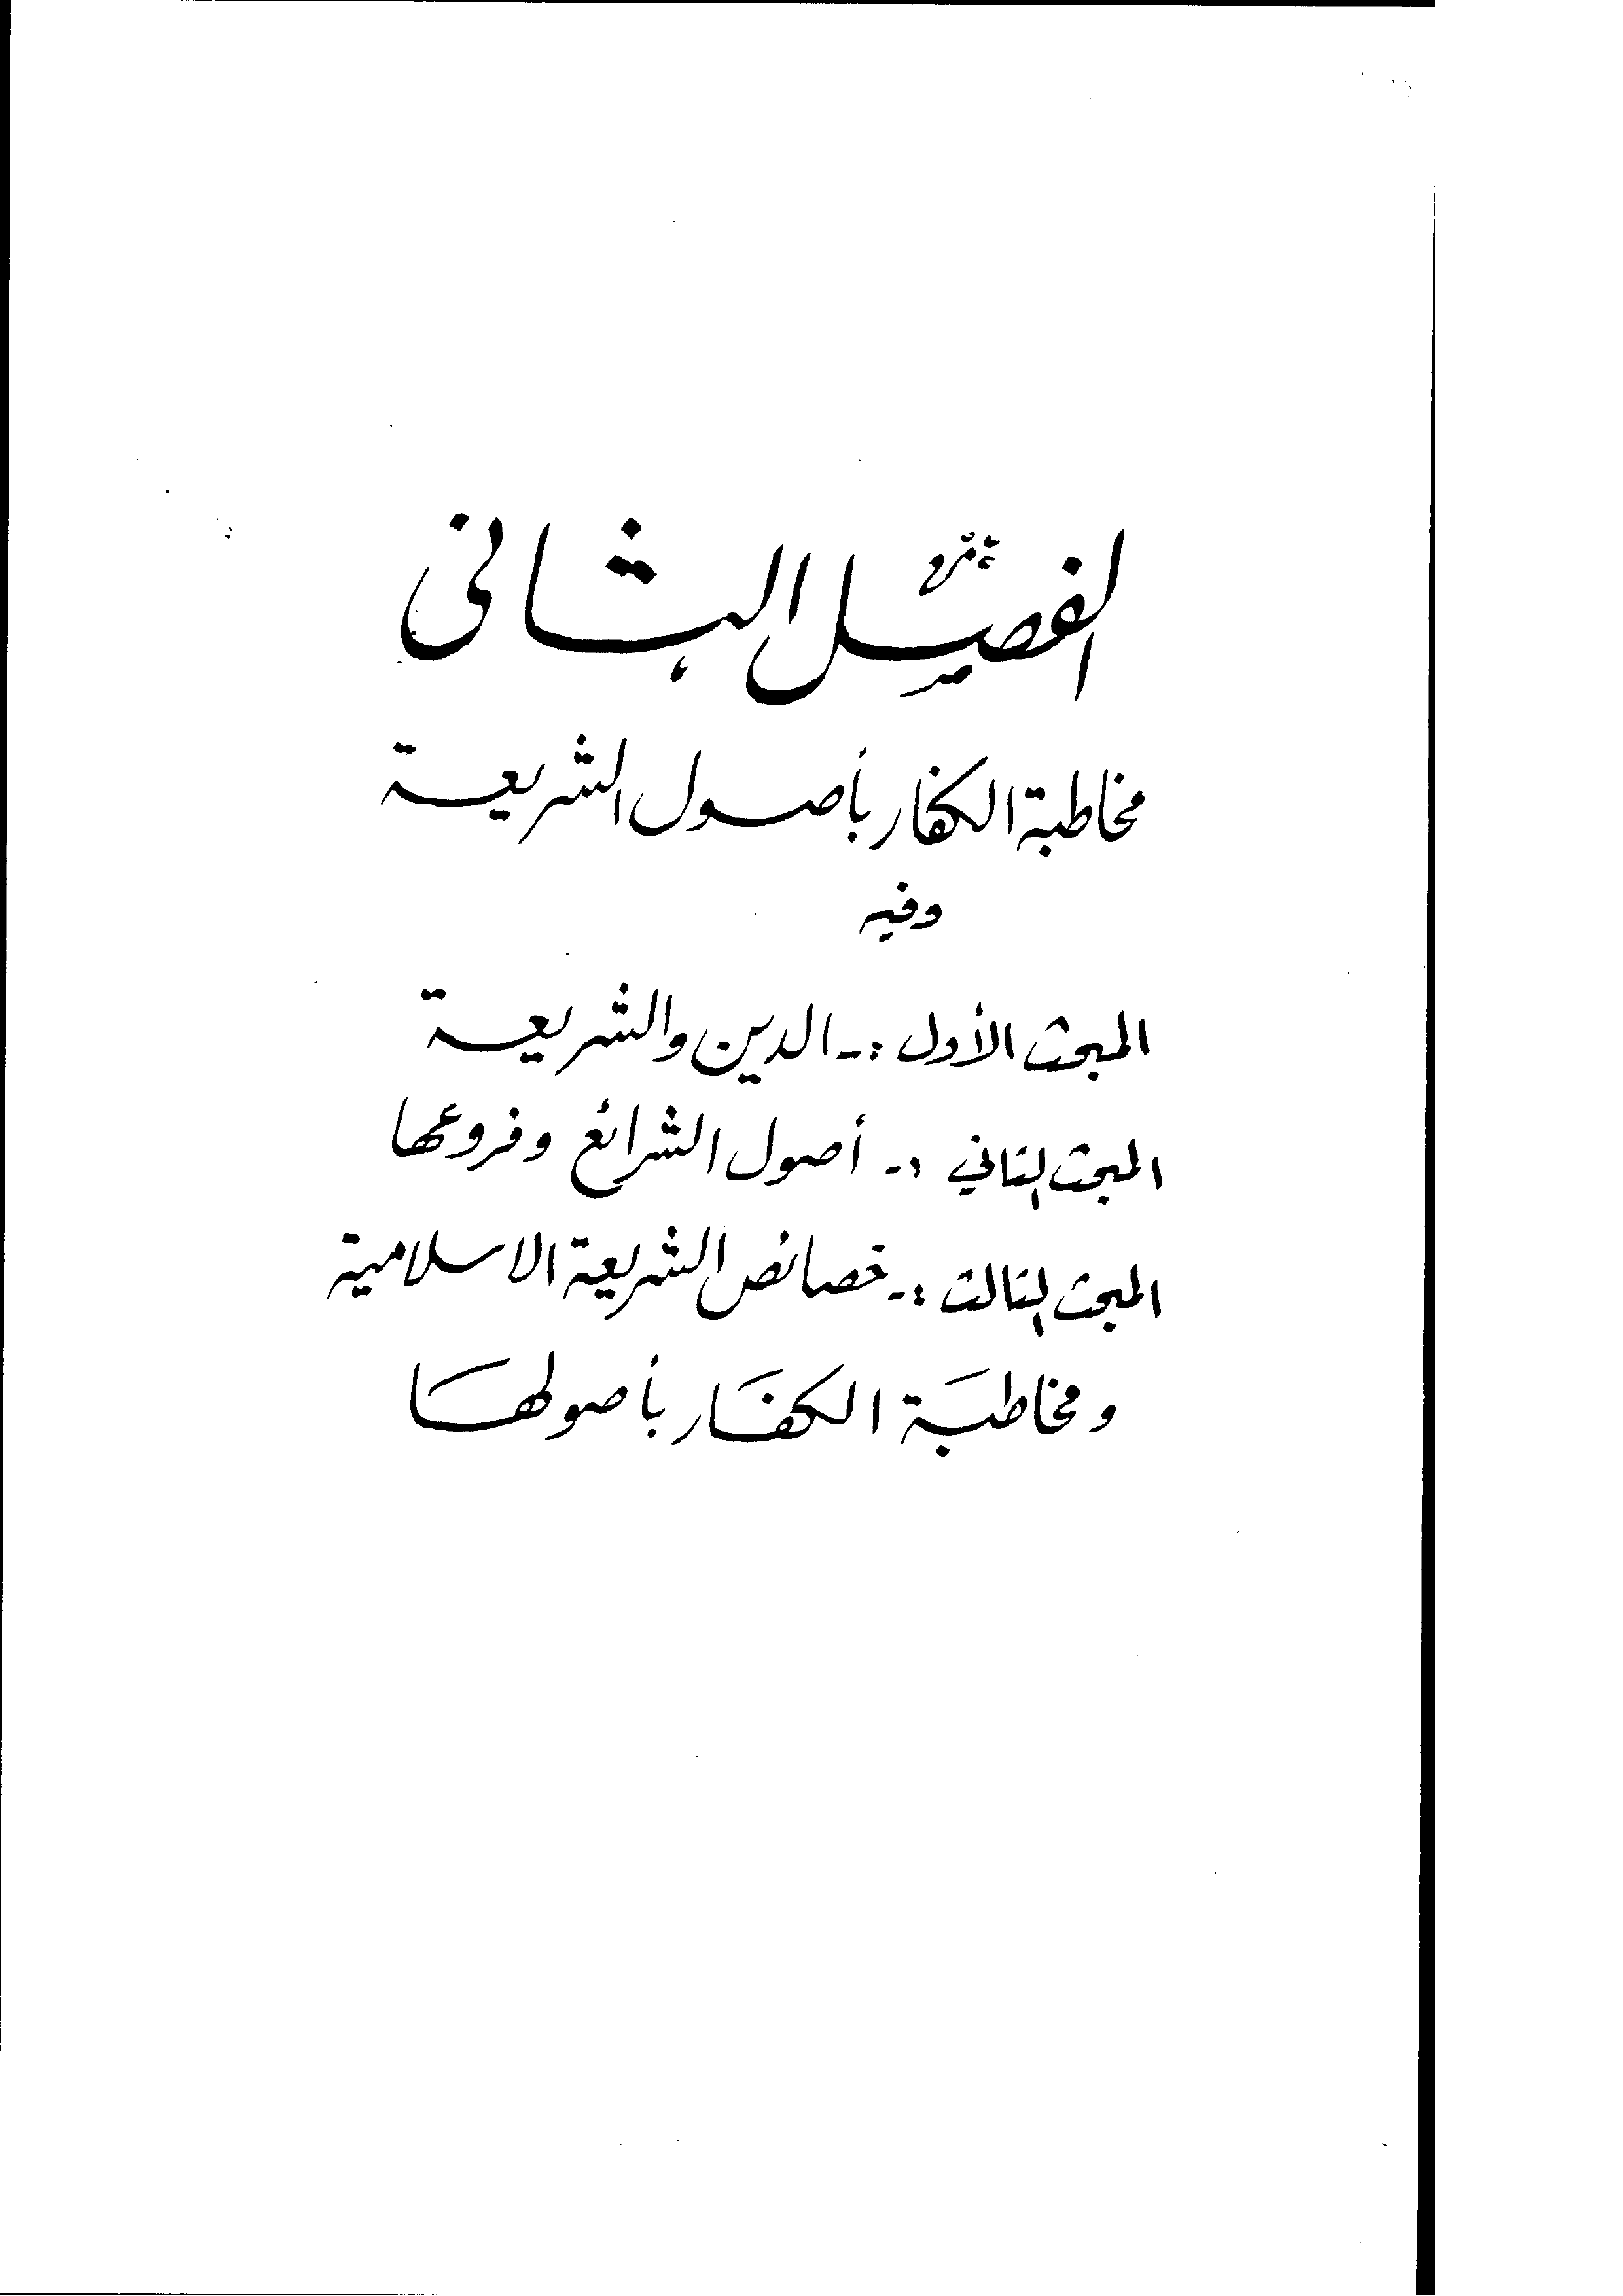 الفصل الثاني
مخاطبة الكفار بأصول الشريعة
وفيه
المبحث الأول :- الدين والشريعة
المبحث الثاني :- أصول الشرائع وفروعها
المبحث الثالث :- خصائص الشريعة الاسلامية
ومخاطبَة الكفَار بأصولهَا